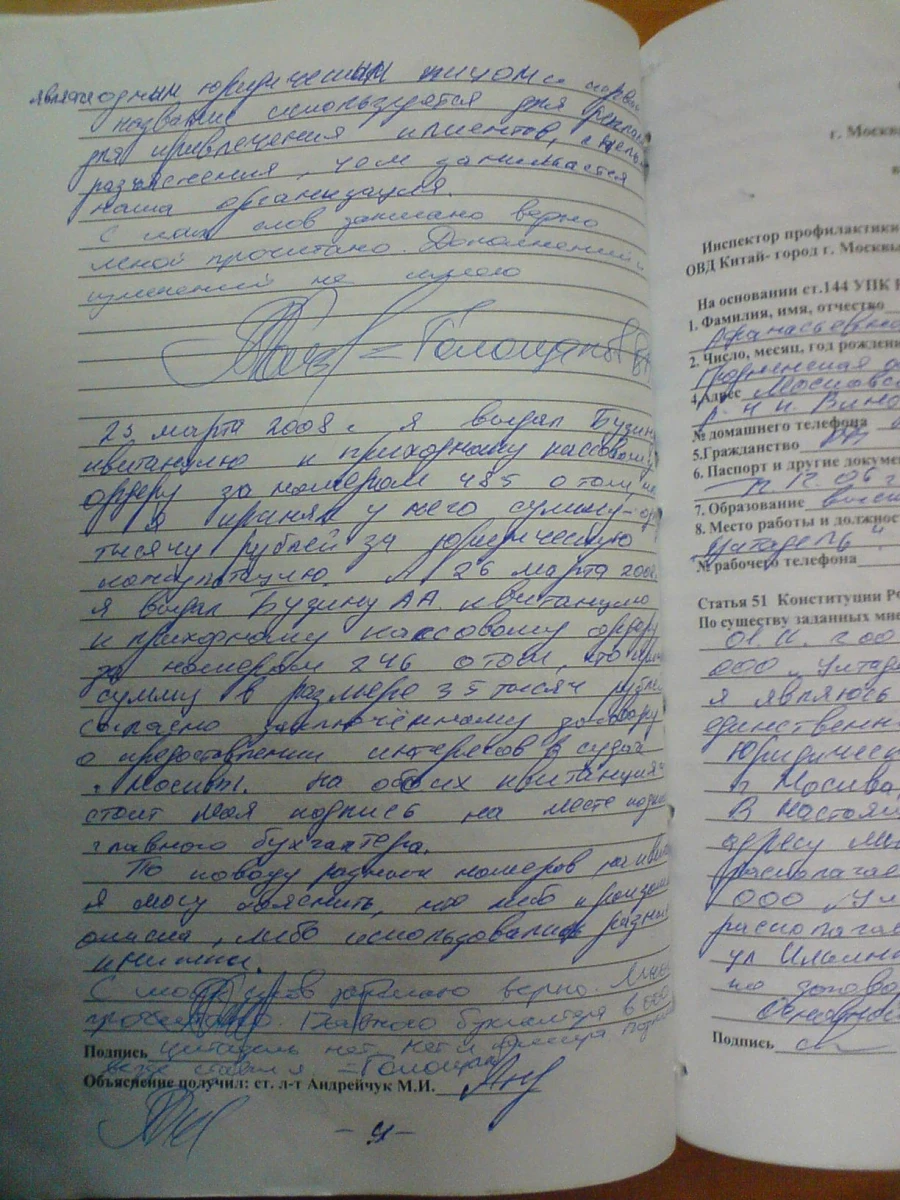 является одним юридическим лицом и первое
название используется для рекламы
для привлечения клиентов, с целью
разъяснения, чем занимается
наша организация.
С моих слов записано верно
мной прочитано. Дополнений и
изменений не имею
23 марта 2008 г. я выдал Бузину
квитанцию к приходному кассовому
ордеру за номером 485 о том, что
я принял у него сумму
тысячу рублей за юридическую
консультацию. А 26 марта 2008
я выдал Бузину А.А. квитанцию
к приходному кассовому ордеру
за номером 246 о том, что принял
сумму в размере 35 тысяч рублей
согласно заключённому договору
о предоставлении интересов в судах
г. Москвы. На обоих квитанциях
стоит моя подпись на месте подписи
главного бухгалтера.
По поводу разных номеров на квит
я могу пояснить, что либо произошла
описка, либо использовались разные
книжки.
С моих слов записано верно. Мною
прочитано. Главного бухгалтера в ООО
Подпись Цитадель нет, нет и
везде ставил я
Объяснение получил: ст. л-т Андрейчук М.И.
г. Москва
Инспектор профилактики
ОВД Китай- город г. Москвы
На основании ст.144 УПК
1. Фамилия, имя, отчество
2. Число, месяц, год рождени
4.Адрес Московс
№ домашнего телефона
5.Гражданство РФ
6. Паспорт и другие докумен
7. Образование высш
8. Место работы и должнос
Цитадель"
№ рабочего телефона
Статья 51 Конституции РФ
По существу заданных мне
ООО „Цитаде
я являюсь
единственн
юридическ
г. Москва,
В настоящ
адресу
располагае
ООО „Цит
располагае
ул Ильинк
по
Основной
Подпись